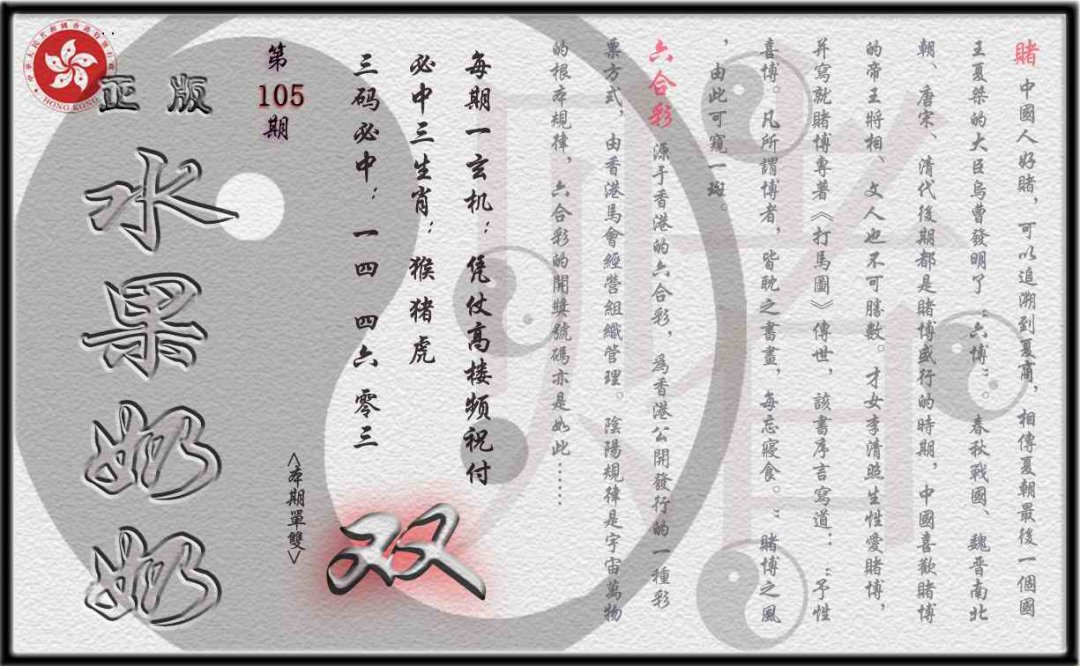 賭 中國人好賭，可以追溯到夏商，相傳夏朝最後一個國
王夏桀的大臣烏曹發明了“六博”。春秋戰國、魏晋南北
朝、唐宋、清代後期都是賭博盛行的時期，中國喜歡賭博
的帝王將相、文人也不可勝數。才女李清照生性愛賭博，
并寫就賭博專著《打馬圖》傳世，該書序言寫道：“予性
喜博。凡所謂博者，皆耽之書畫，每忘寢食。”賭博之風
，由此可窺一斑。
六合彩 源于香港的六合彩，為香港公開發行的一種彩
票方式，由香港馬會經營組織管理。陰陽規律是宇宙萬物
的根本規律，六合彩的開獎號碼亦是如此……
每期一玄机：凭仗高楼频祝付
必中三生肖：猴猪虎
三码必中：一四 四六 零三
双
<本期單雙>
第105期
HONG KONG
正版
水果奶奶